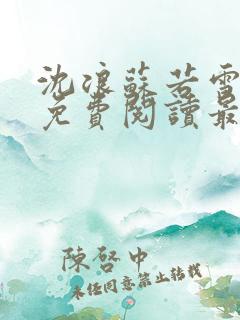 沈浪蘇若雪
免費閱讀最
陳啓中
未經同意禁止轉載